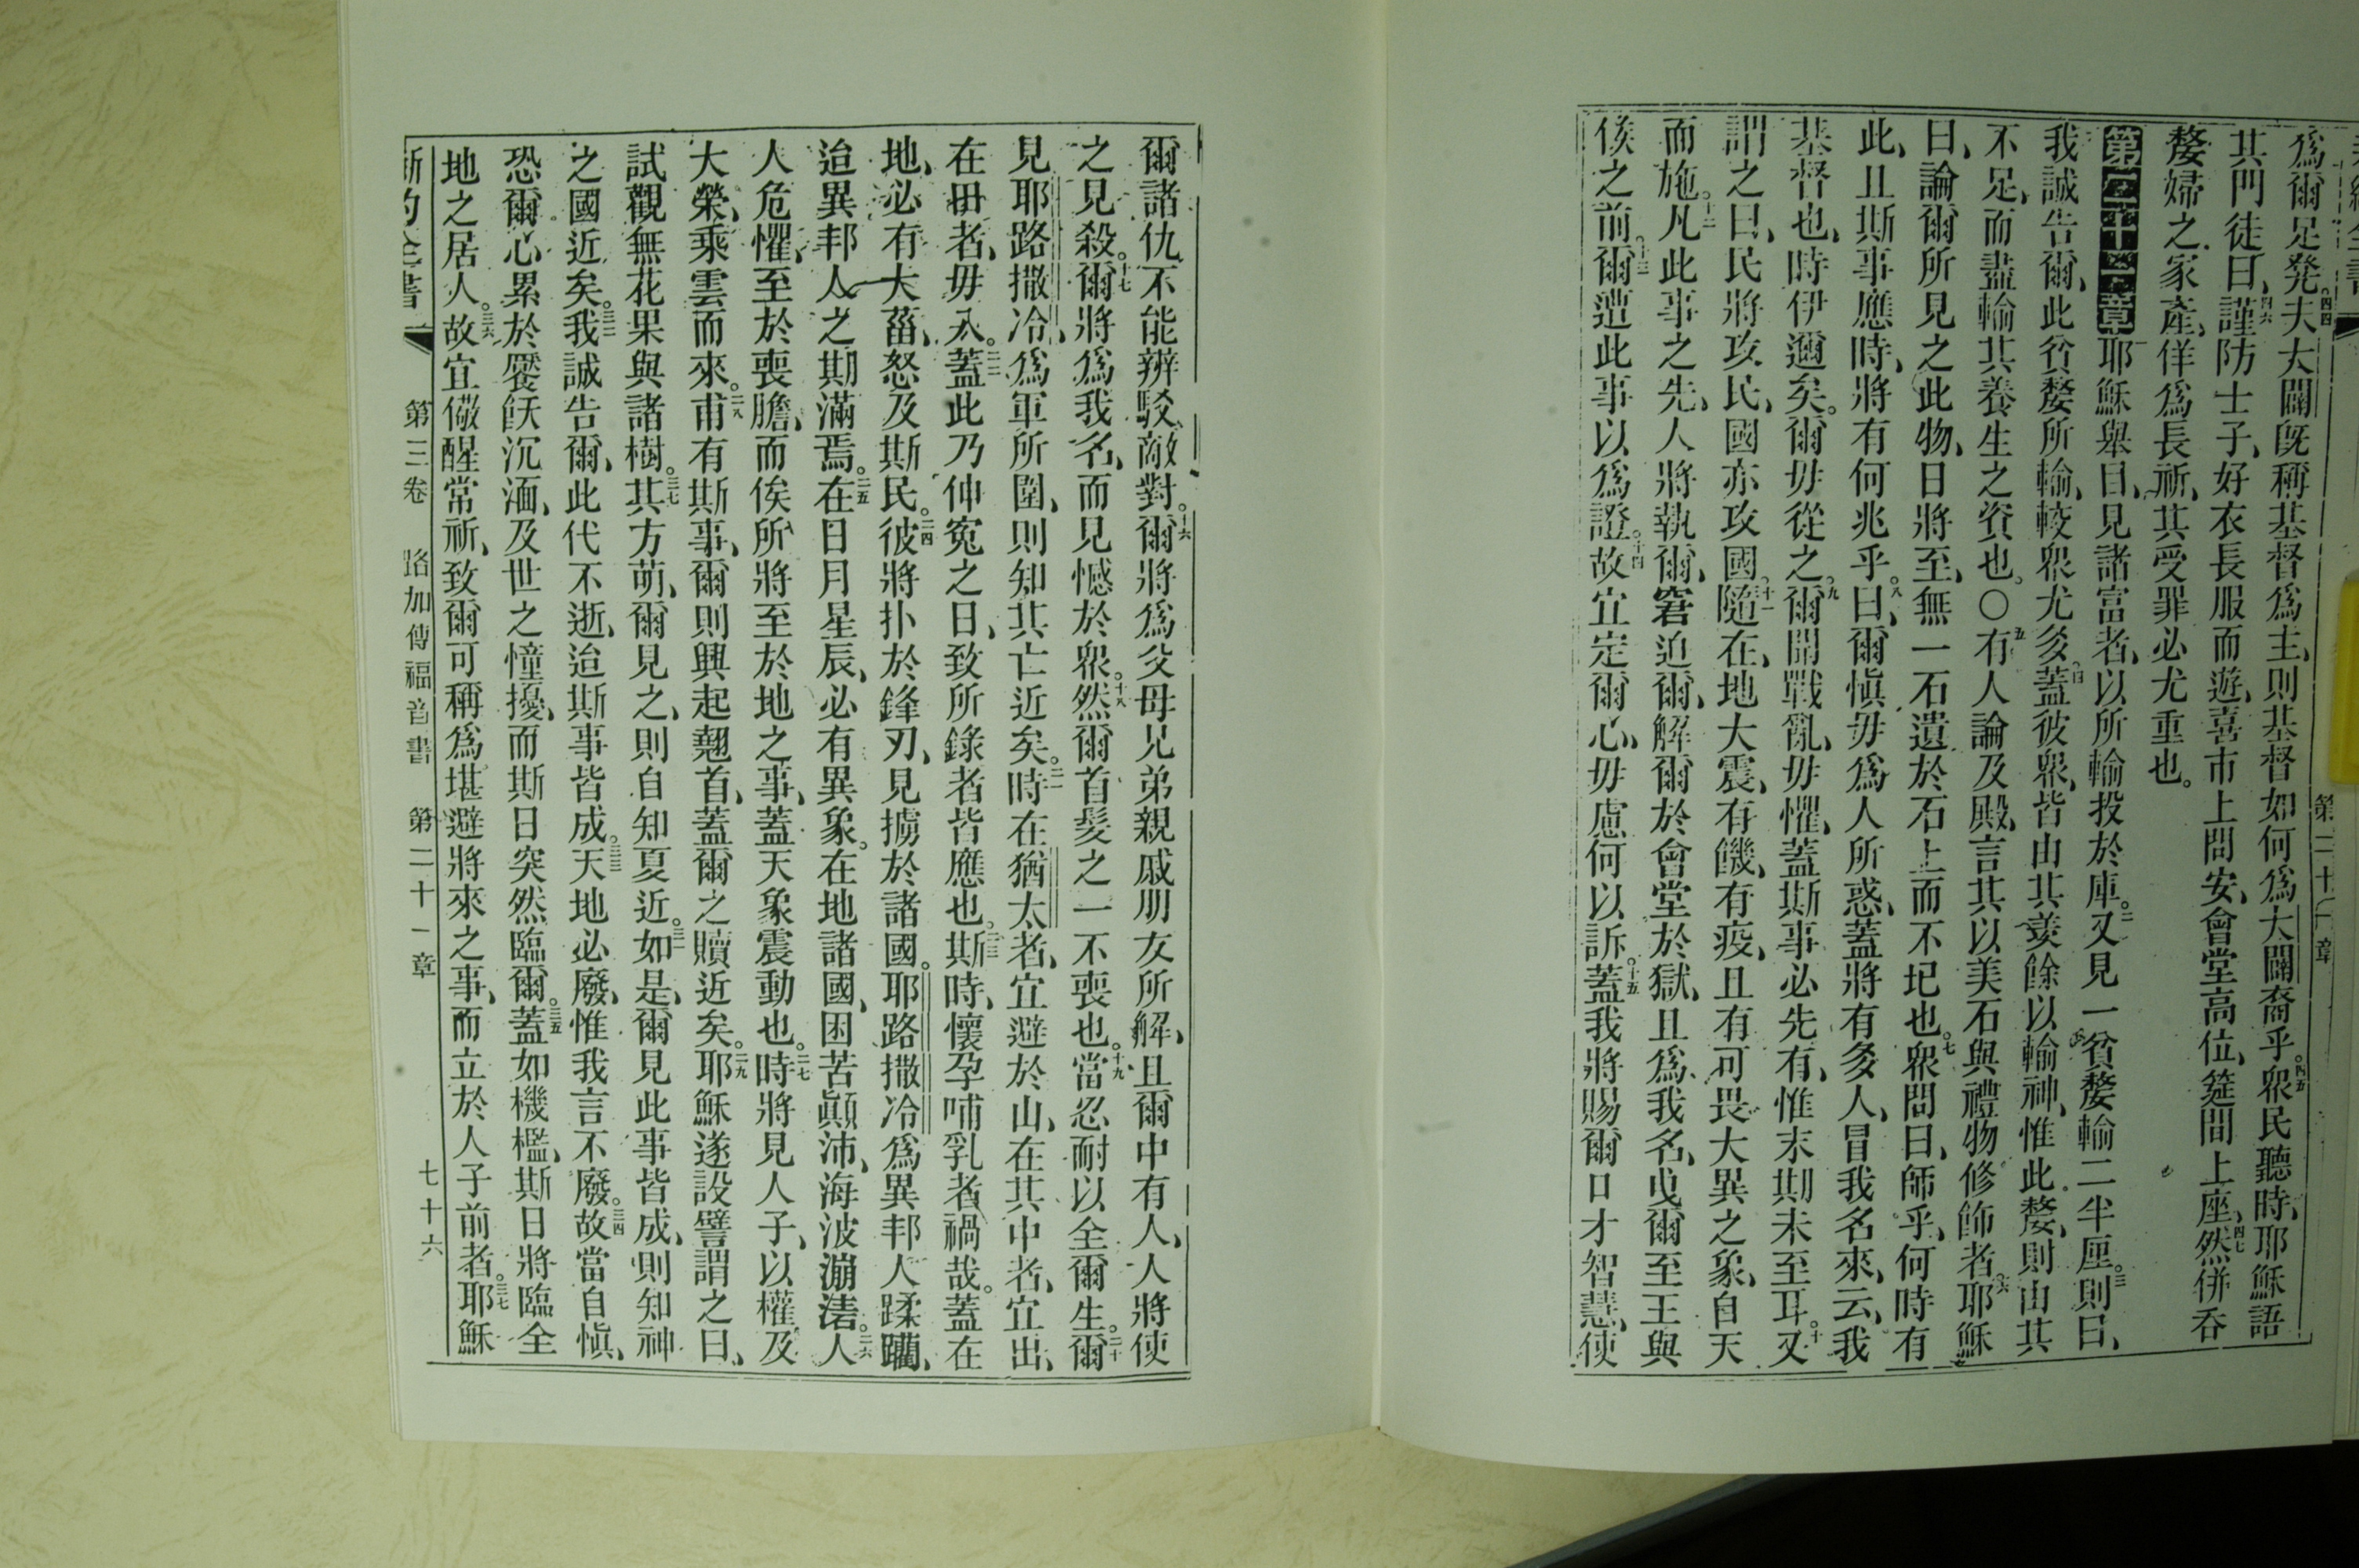 爲爾足凳。四四夫大闢旣稱基督爲主、則基督如何爲大闢裔乎。四五衆民聽時、耶穌語
其門徒曰、四六謹防士子、好衣長服而遊、喜市上問安、會堂高位、筵間上座、四七然併吞
嫠婦之家產、佯爲長祈、其受罪必尤重也。
第二十一章耶穌舉目、見諸富者、以所輸投於庫。二又見一貧嫠輸二半厘。三則曰、
我誠告爾、此貧嫠所輸、較衆尤多。四蓋彼衆、皆由其羨餘以輸神、惟此嫠、則由其
不足、而盡輸其養生之資也。〇五有人論及殿、言其以美石與禮物修飾者。六耶穌
曰、論爾所見之此物、日將至、無一石遺於石上而不圮也。七衆問曰、師乎、何時有
此、且斯事應時、將有何兆乎。八曰、爾愼毋爲人所惑、蓋將有多人、冒我名來、云、我
基督也、時伊邇矣。爾毋從之。九爾聞戰亂、毋懼、蓋斯事必先有、惟末期未至耳。十又
謂之曰、民將攻民、國亦攻國。十一隨在、地大震、有饑、有疫、且有可畏大異之象、自天
而施。十二凡此事之先、人將執爾、窘迫爾、解爾於會堂於獄、且爲我名、曳爾至王與
侯之前。十三爾遭此事以爲證。十四故宜定爾心、毋慮何以訴。十五蓋我將賜爾口才智慧、使
第二十一章
爾諸仇、不能辨駁敵對。十六爾將爲父母兄弟親戚朋友所解、且爾中有人、人將使
之見殺。十七爾將爲我名、而見憾於衆。十八然爾首髮之一不喪也。十九當忍耐以全爾生。二十爾
見耶路撒冷爲軍所圍、則知其亡近矣。二一時在猶太者、宜避於山、在其中者、宜出、
在田者、毋入。二二蓋此乃伸寃之日、致所錄者皆應也。二三斯時、懷孕哺乳者禍哉。蓋在
地、必有大菑、怒及斯民。二四彼將扑於鋒刃、見擄於諸國。耶路撒冷爲異邦人蹂躪、
迨異邦人之期滿焉。二五在日月星辰、必有異象。在地諸國、困苦顚沛、海波澎湱。二六人
人危懼、至於喪膽、而俟所將至於地之事、蓋天象震動也。二七時將見人子、以權及
大榮、乘雲而來。二八甫有斯事、爾則興起翹首、蓋爾之贖近矣。二九耶穌遂設譬謂之曰、
試觀無花果與諸樹。三十其方萌、爾見之、則自知夏近。三一如是、爾見此事皆成、則知神
之國近矣。三二我誠告爾、此代不逝、迨斯事皆成。三三天地必廢、惟我言不廢。三四故當自愼、
恐爾心累於饜飫沉湎、及世之憧擾、而斯日突然臨爾。三五蓋如機檻、斯日將臨全
地之居人。三六故宜儆醒常祈、致爾可稱爲堪避將來之事、而立於人子前者。三七耶穌
新約全書 第三卷 路加傳福音書 第二十一章 七十六